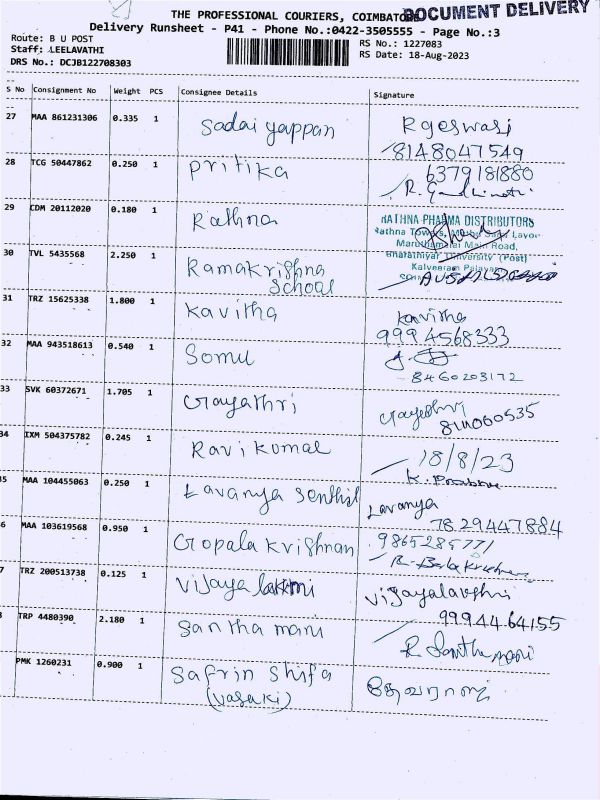 THE PROFESSIONAL COURIERS, COIMBATORE
DOCUMENT DELIVERY
Delivery Runsheet - P41 - Phone No.:0422-3505555 - Page No.:3
Route: B U POST
RS No.: 1227083
Staff: LEELAVATHI
RS Date: 18-Aug-2023
DRS No.: DCJB122708303
S No Consignment No Weight PCS Consignee Details Signature
27 MAA 861231306 0.335 1 Sadaiyappan Rgeswari
8148047549
28 TCG 50447862 0.250 1 Pritika 6379181880
29 CDM 20112020 0.180 1 Rathna RATHNA PHARMA DISTRIBUTORS
Maruthamalai Main Road,
Bharathiyar University (Post)
30 TVL 5435568 2.250 1 Ramakrishna
School
31 TRZ 15625338 1.800 1 Kavitha Kavitha
9994568333
32 MAA 943518613 0.540 1 Somu
8460203172
33 SVK 60372671 1.705 1 Gayathri Gayathri
34 IXM 504375782 0.245 1 Ravi Komal 18/8/23
K. Prabhu
5 MAA 104455063 0.250 1 Lavanya Senthil Lavanya
7829447884
6 MAA 103619568 0.950 1 Gopala Krishnan
R. Balakrishnan
7 TRZ 200513738 0.125 1 Vijaya lakkmi
9994464155
TRP 4480390 2.180 1 Santha mani R Santhamani
PMK 1260231 0.900 1 Safrin Shifa
(Vasaki)